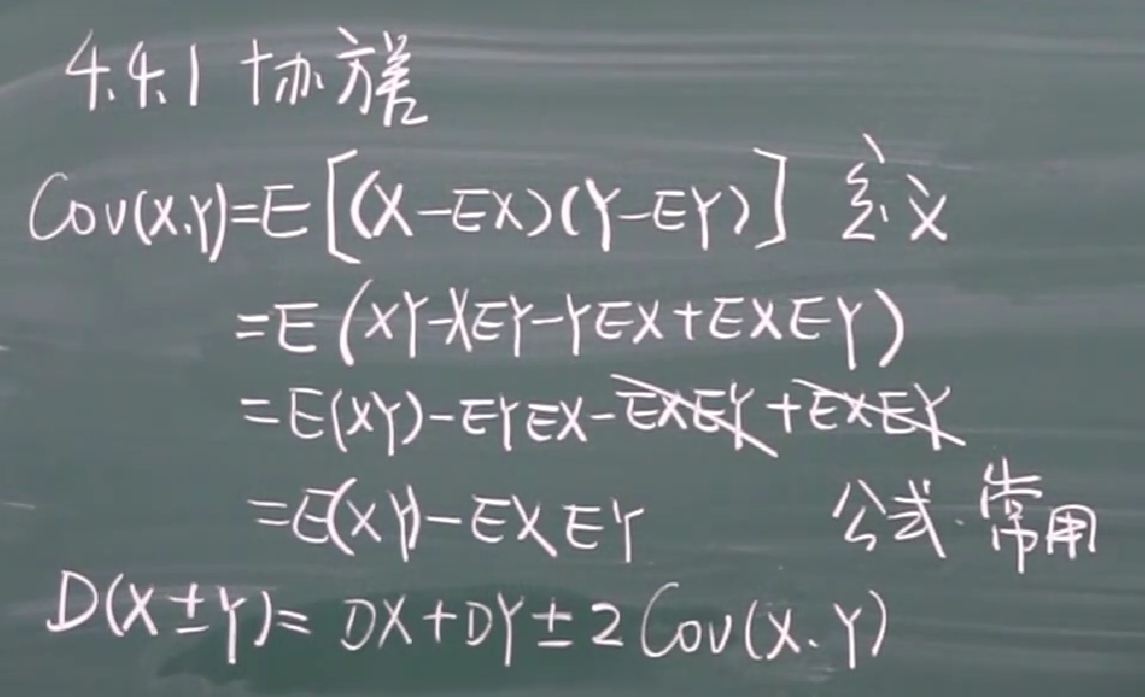 4.4.1 协方差
Cov(X,Y)=E[(X-EX)(Y-EY)] 定义
=E(XY-XEY-YEX+EXEY)
=E(XY)-EYEX-EXEY+EXEY
=E(XY)-EXEY 公式.常用
D(X±Y)=DX+DY±2Cov(X.Y)